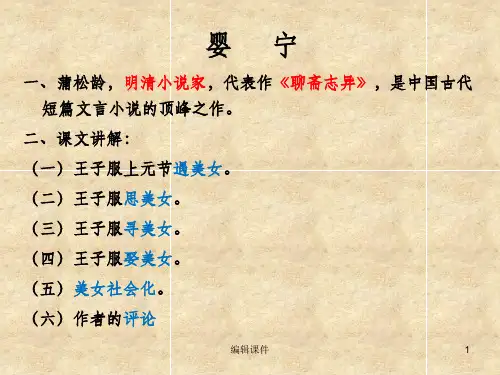 婴 宁
一、蒲松龄，明清小说家，代表作《聊斋志异》，是中国古代
短篇文言小说的顶峰之作。
二、课文讲解：
（一）王子服上元节遇美女。
（二）王子服思美女。
（三）王子服寻美女。
（四）王子服娶美女。
（五）美女社会化。
（六）作者的评论
编辑课件
1